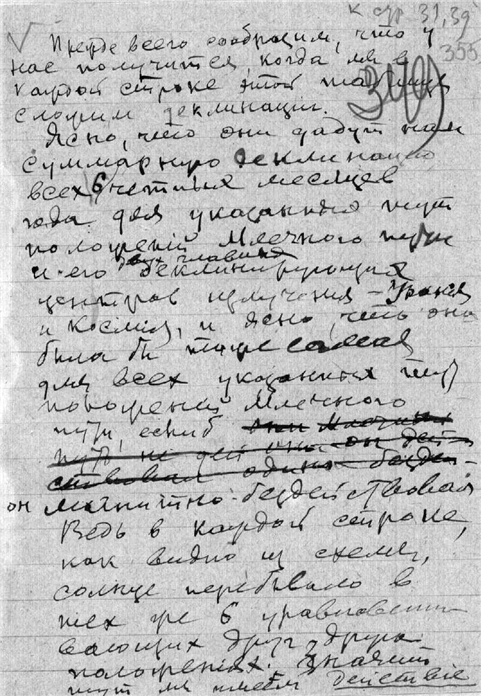 к стр. 31, 39
355
Прежде всего сообразим, что у
нас получится, когда мы в
каждой строке этой таблицы
сложим деклинации.
Ясно, что они дадут нам
суммарную деклинацию
всех 6 четных месяцев
года для указанных тут
положений Млечного пути
и его двух главных деклинирующих
центров излучения –
и Космия, и ясно, что она
была бы тоже самая
для всех указанных тут
положений Млечного
пути, еслиб
он магнитно-бездействовал
Ведь в каждой строке,
как видно из схемы,
солнце перебывало в
тех же 6 уравновеши
вающих друг друга
положениях. Значит
тут мы имеем действие